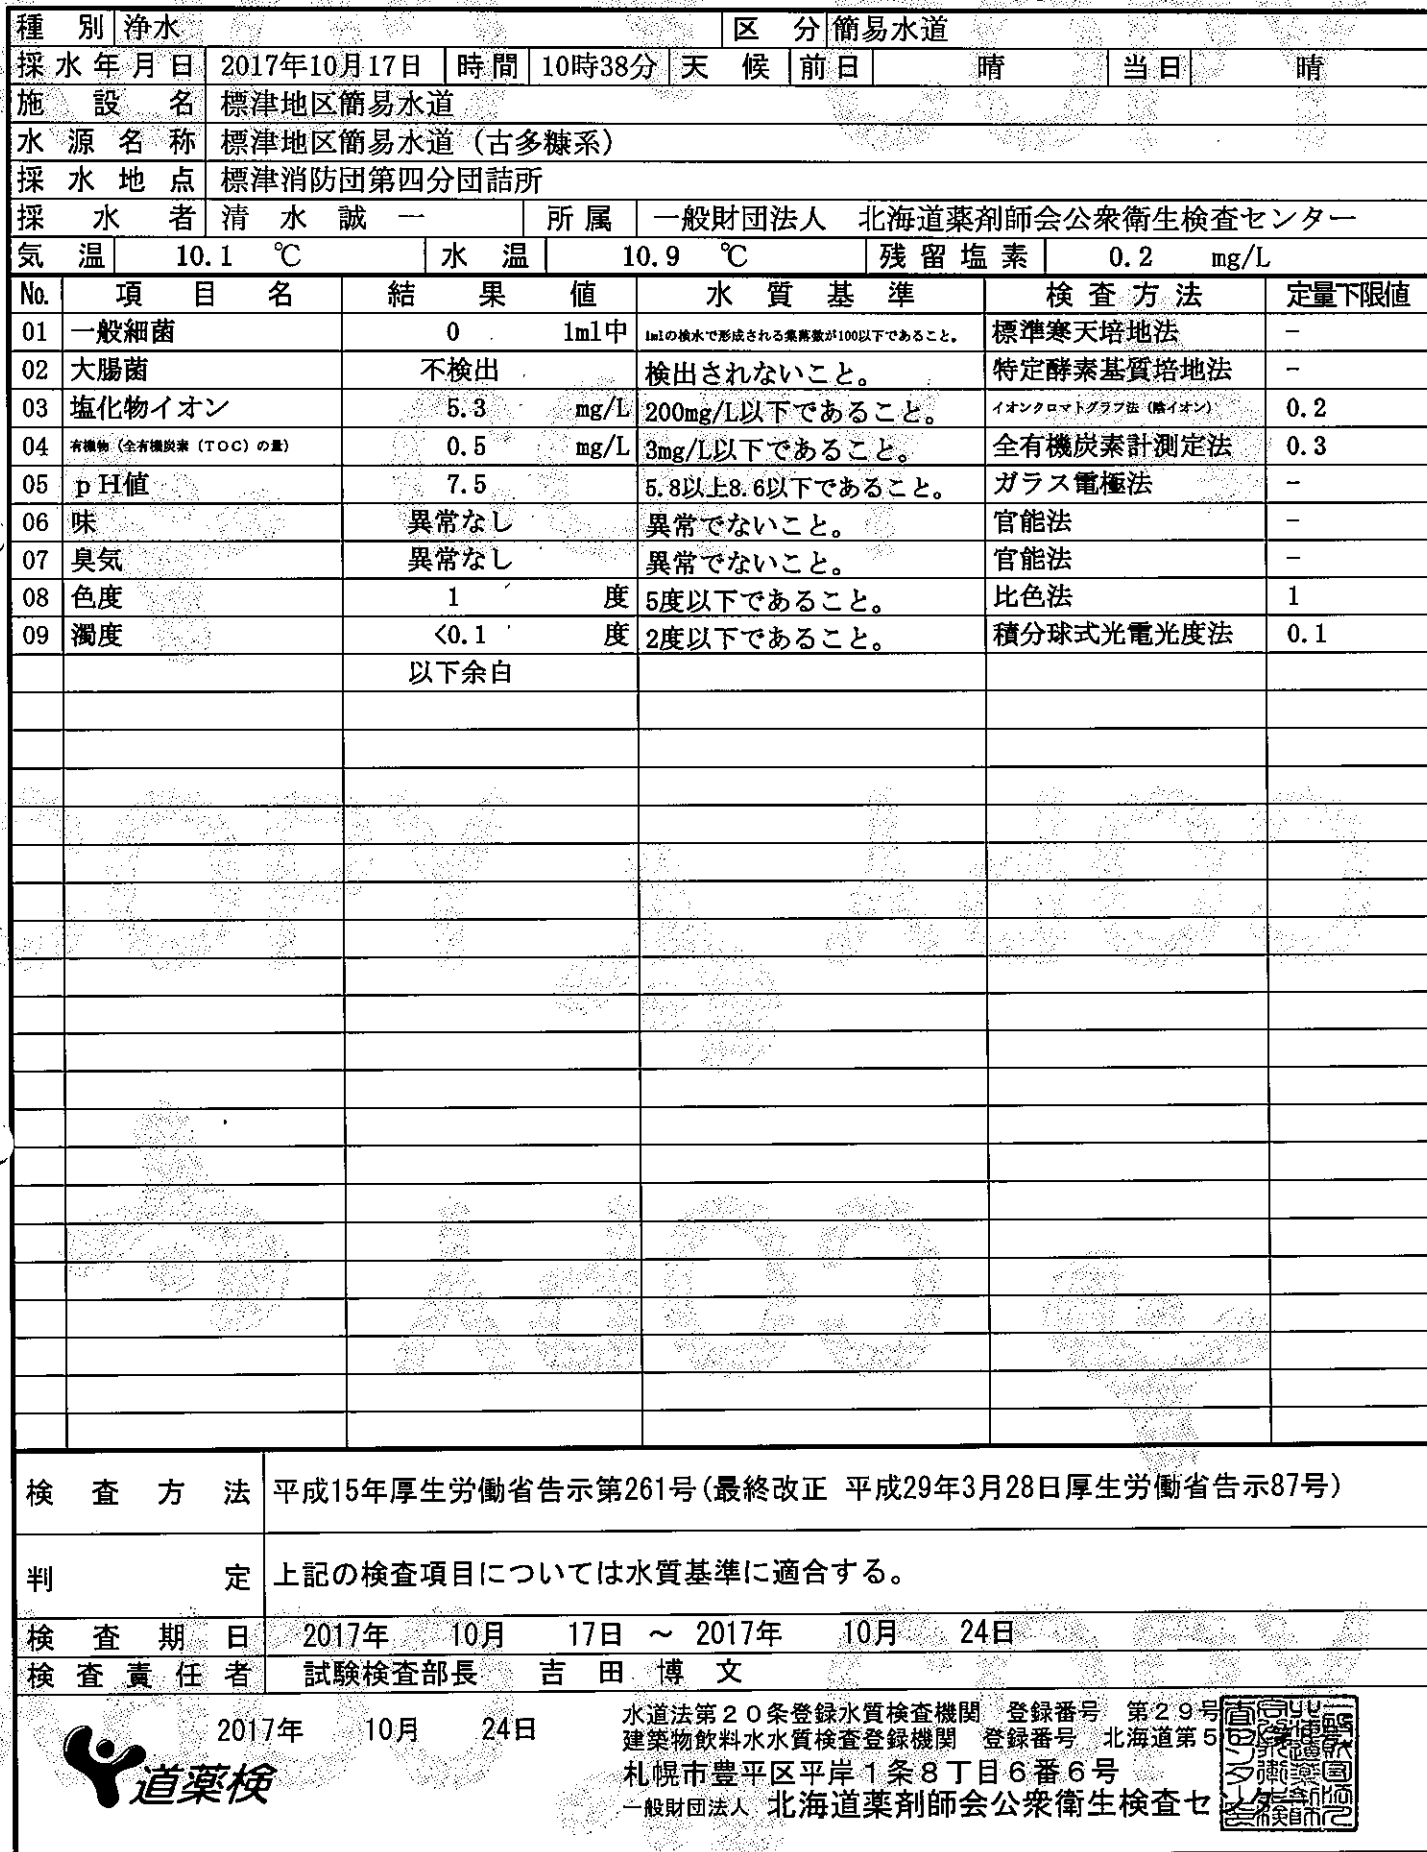 種別 浄水 区分 簡易水道
採水年月日 2017年10月17日 時間 10時38分 天候 前日 晴 当日 晴
施設名 標津地区簡易水道
水源名称 標津地区簡易水道（古多糠系）
採水地点 標津消防団第四分団詰所
採水者 清水誠一 所属 一般財団法人 北海道薬剤師会公衆衛生検査センター
気温 10.1 ℃ 水温 10.9 ℃ 残留塩素 0.2 mg/L
No. 項目名 結果値 水質基準 検査方法 定量下限値
01 一般細菌 0 1ml中 1mlの検水で形成される集落数が100以下であること。 標準寒天培地法 −
02 大腸菌 不検出 検出されないこと。 特定酵素基質培地法 −
03 塩化物イオン 5.3 mg/L 200mg/L以下であること。 イオンクロマトグラフ法（陰イオン） 0.2
04 有機物（全有機炭素（TOC）の量） 0.5 mg/L 3mg/L以下であること。 全有機炭素計測定法 0.3
05 pH値 7.5 5.8以上8.6以下であること。 ガラス電極法 −
06 味 異常なし 異常でないこと。 官能法 −
07 臭気 異常なし 異常でないこと。 官能法 −
08 色度 1 度 5度以下であること。 比色法 1
09 濁度 <0.1 度 2度以下であること。 積分球式光電光度法 0.1
以下余白
検査方法 平成15年厚生労働省告示第261号(最終改正 平成29年3月28日厚生労働省告示87号)
判定 上記の検査項目については水質基準に適合する。
検査期日 2017年 10月 17日 ～ 2017年 10月 24日
検査責任者 試験検査部長 吉田博文
2017年 10月 24日
道薬検
水道法第20条登録水質検査機関 登録番号 第29号
建築物飲料水水質検査登録機関 登録番号 北海道第5
札幌市豊平区平岸1条8丁目6番6号
一般財団法人 北海道薬剤師会公衆衛生検査センター